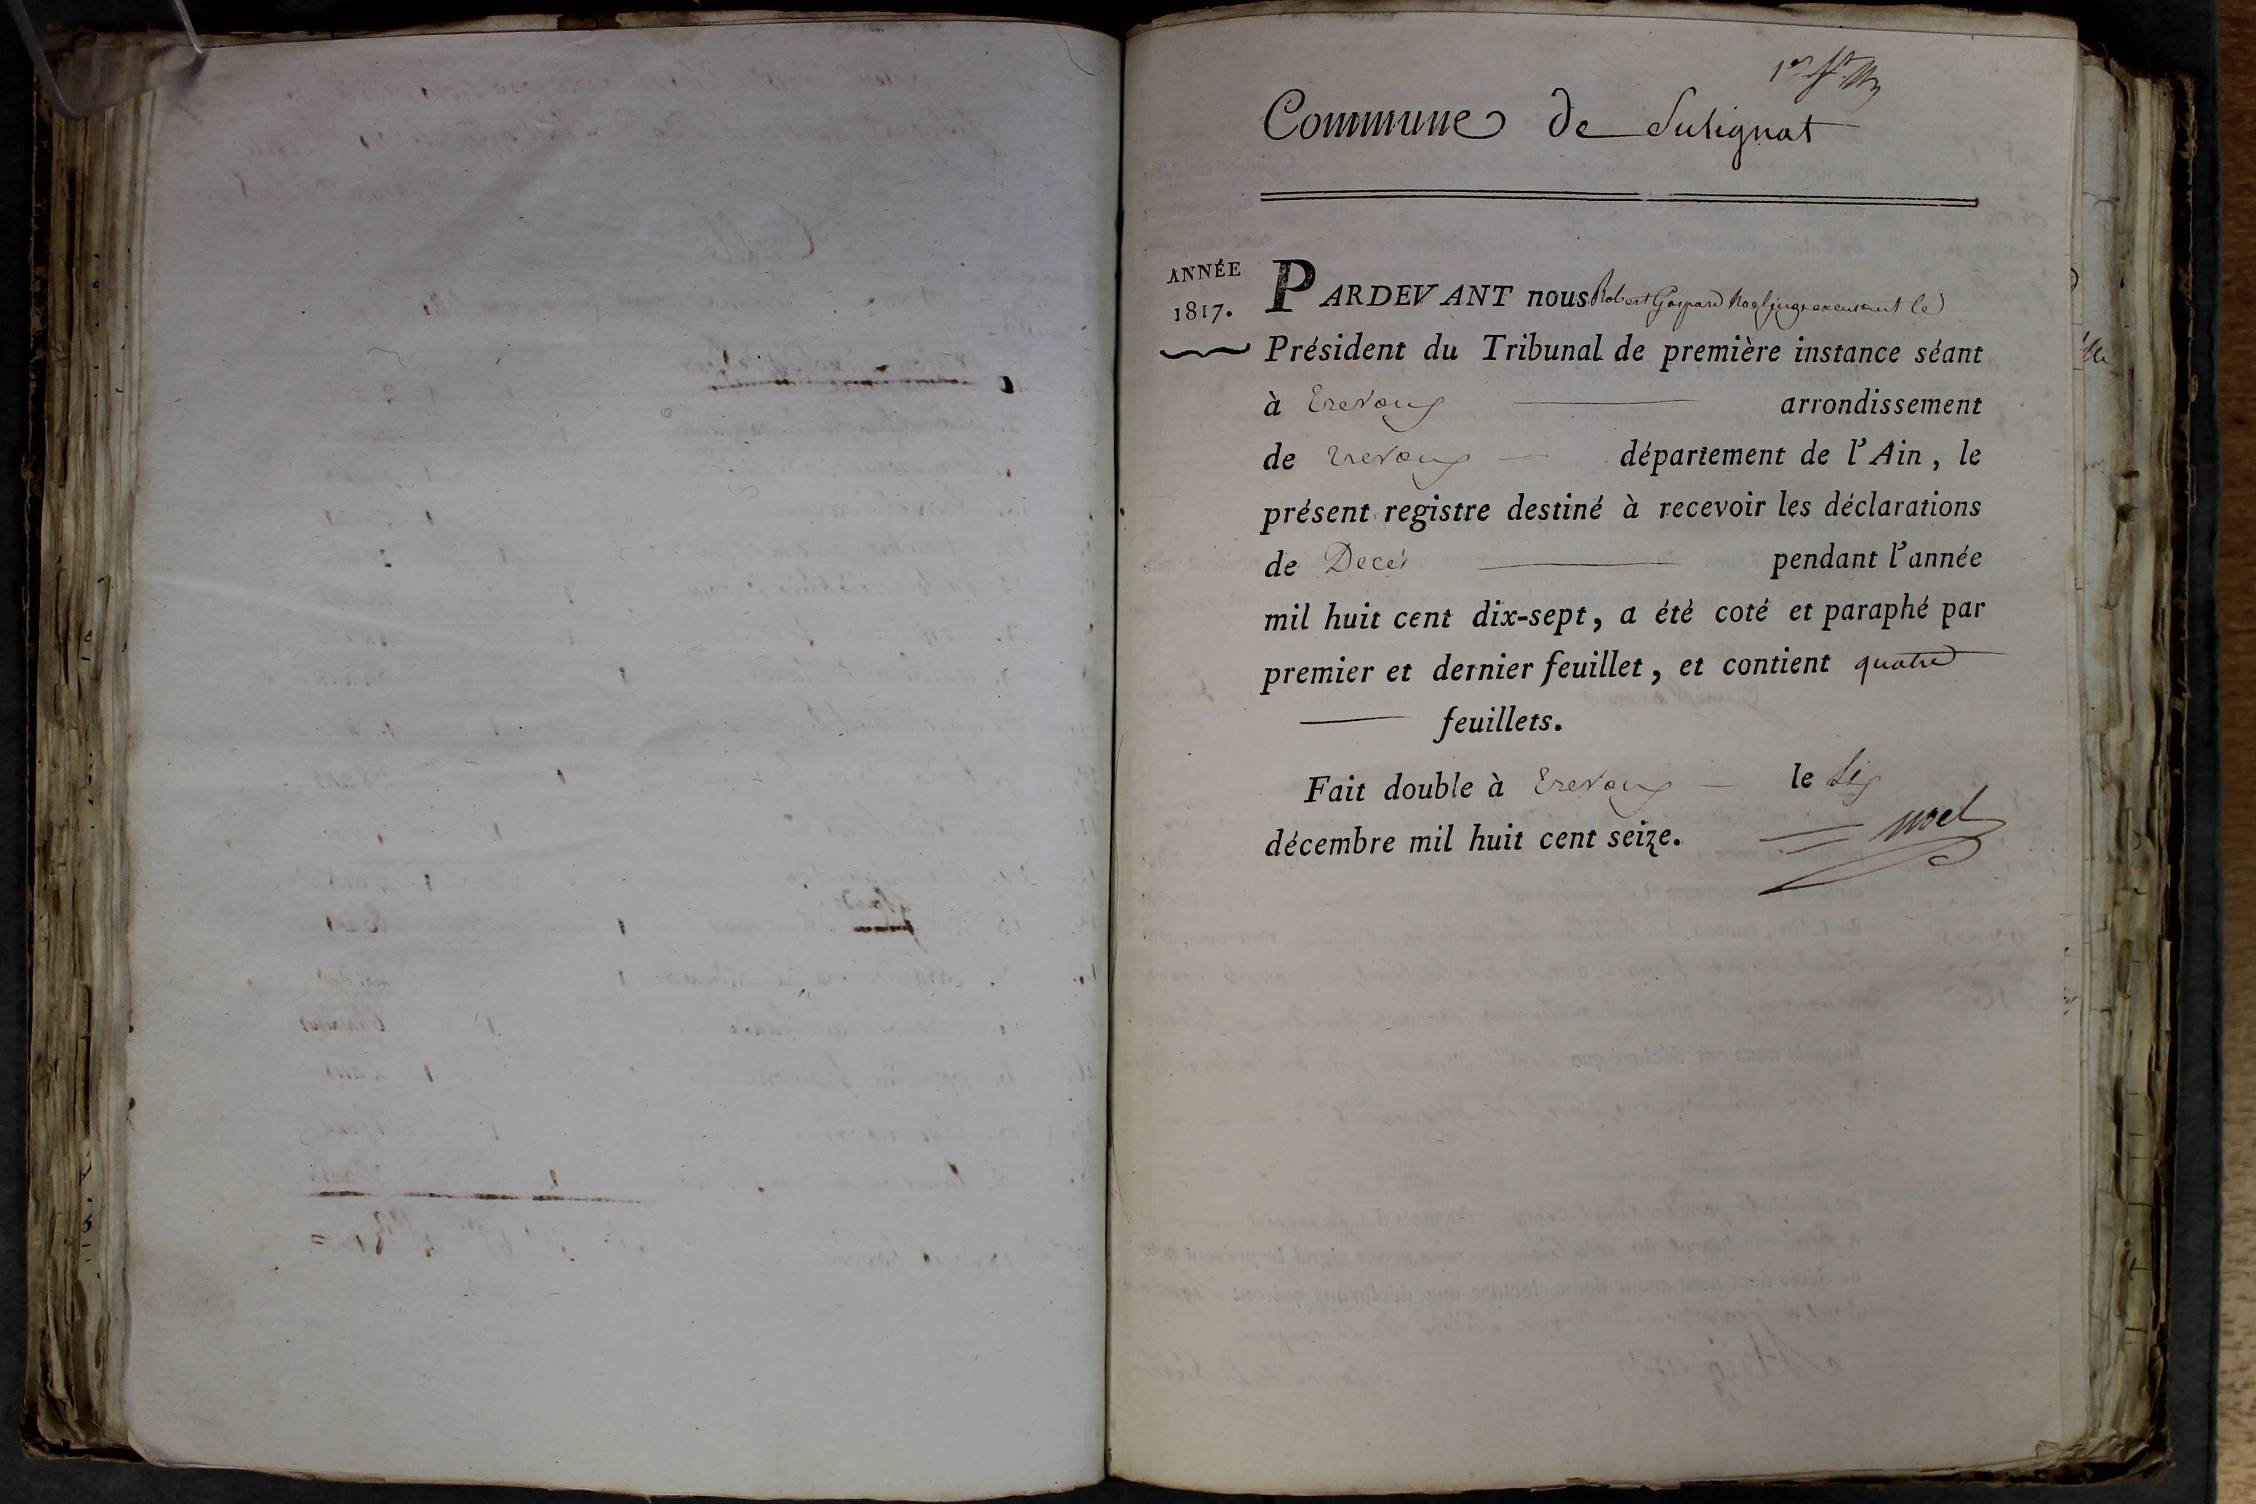 Commune de Sulignat
ANNÉE
1817.
PARDEVANT nous Robert Gaspard Noel juge exercant le
Président du Tribunal de première instance séant
à Trevoux arrondissement
de Trevoux département de l'Ain, le
présent registre destiné à recevoir les déclarations
de Decés pendant l'année
mil huit cent dix-sept, a été coté et paraphé par
premier et dernier feuillet, et contient quatre
feuillets.
Fait double à Trevoux le six
décembre mil huit cent seize.
Noel